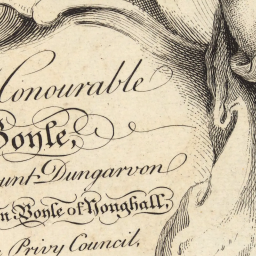 Honourable
Boyle,
unt Dungarvon
n Boyle of Youghall,
Privy Council,